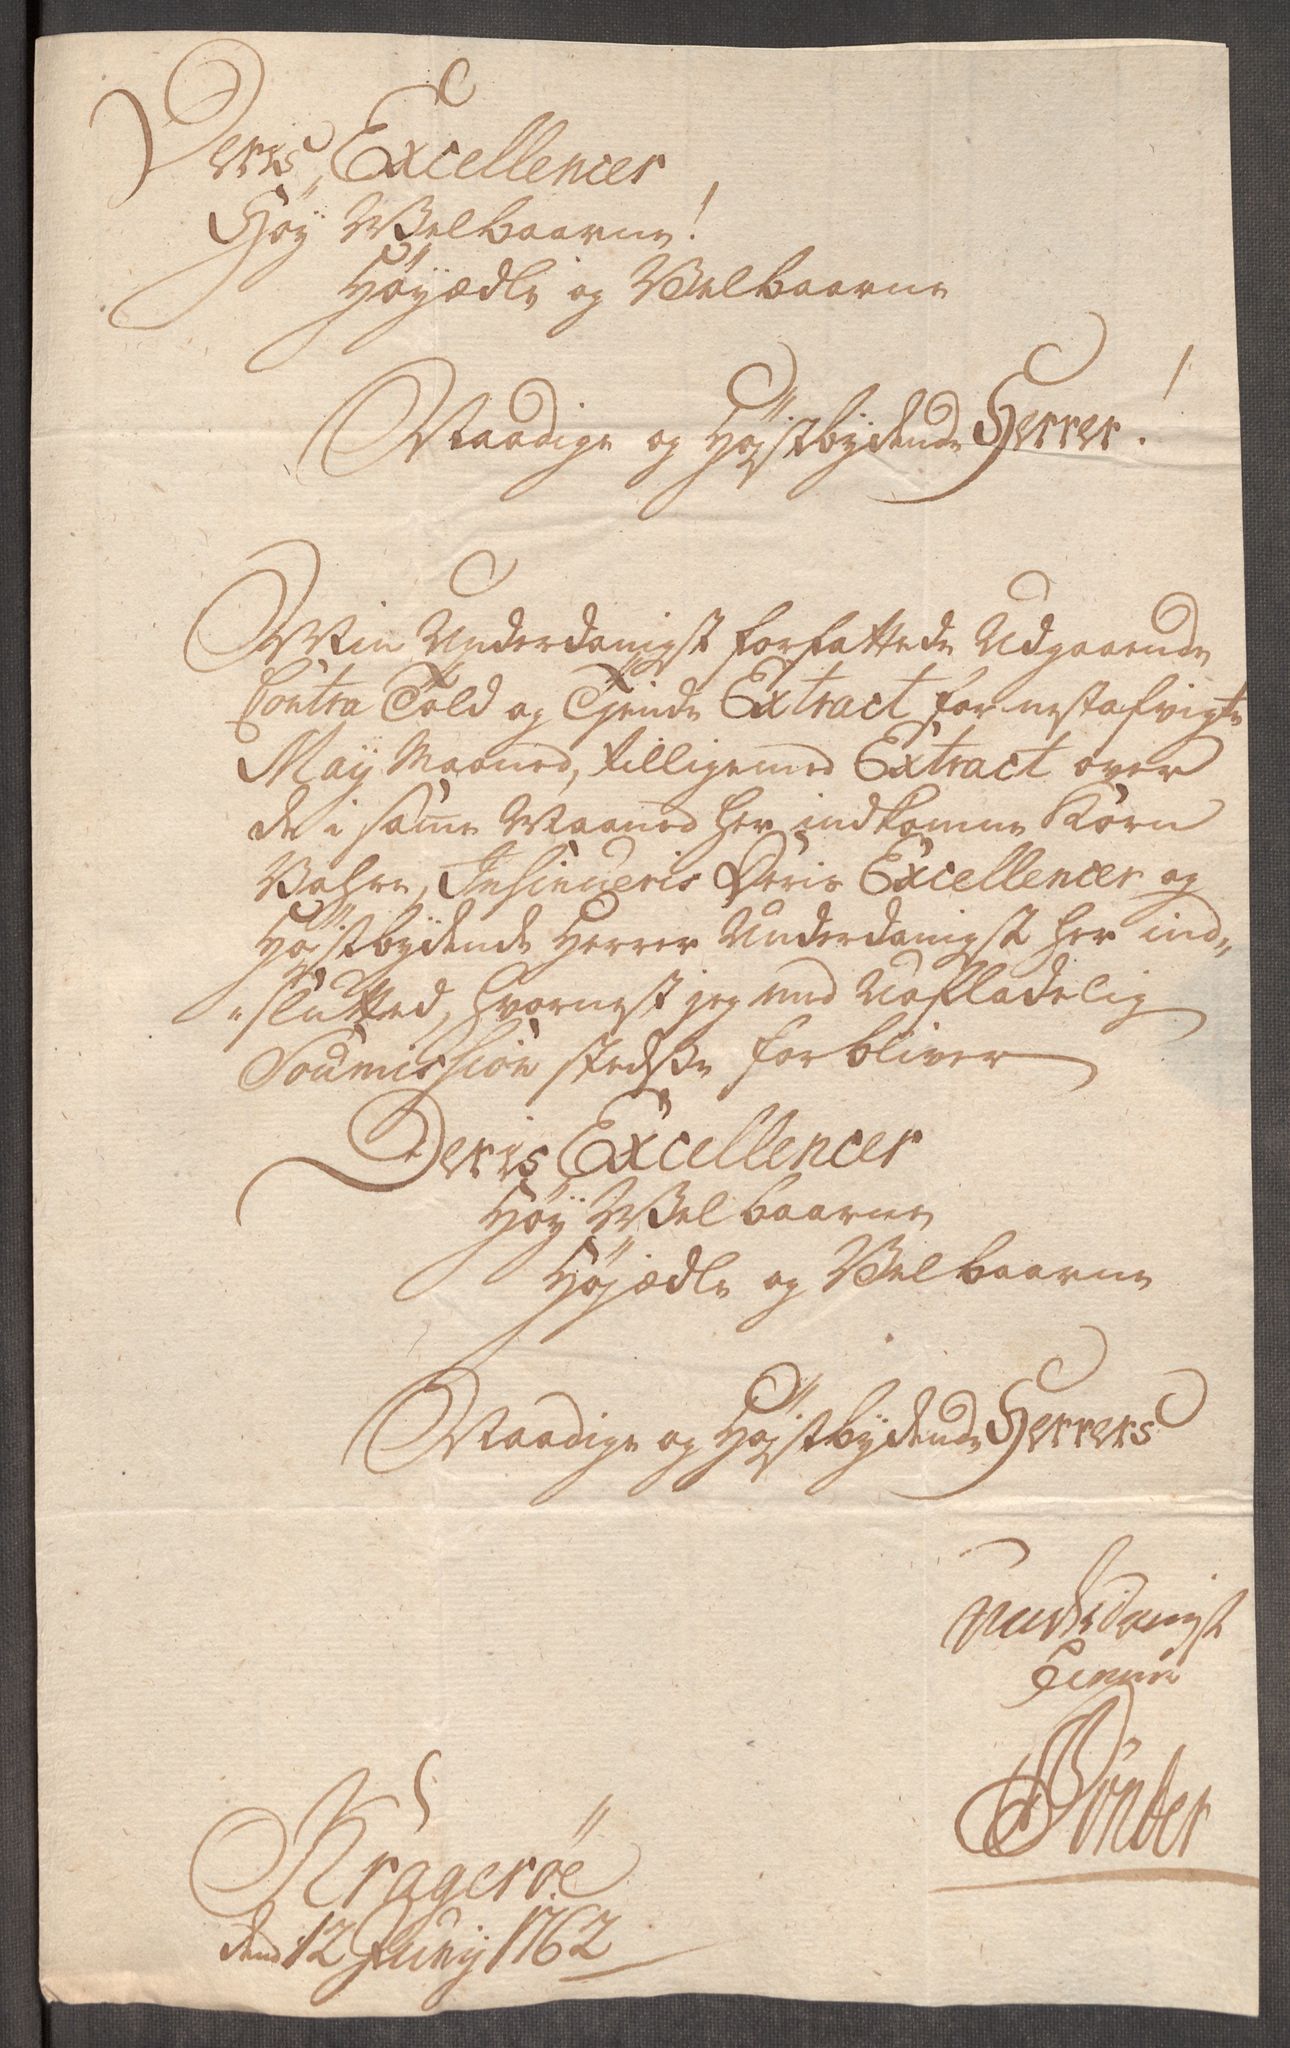 Deris Excellencer
Høy Welbaarne!
Höyædle og Velbaarne
Naadige og Høystbydende Herrer!
Min Underdanigst forfattede Udgaaende
Contra Told og Tjende Extract for nestafvigte
Maÿ Maaned, tilligemed Extract over
de i samme Maaned her indkomne Korn
Vahre, Insinueris Deris Excellencer og
Höystbydende Herrer Underdanigst her ind-
slutted, hvornest jeg med Uafladelig
Soumission stedse forbliver
Deris Excellencer
Høy Welbaarne
Høyædle og Velbaarne
Naadige og Höystbydende Herrers
Underdanigst
Tienner
Kragerøe
den 12 Junij 1762